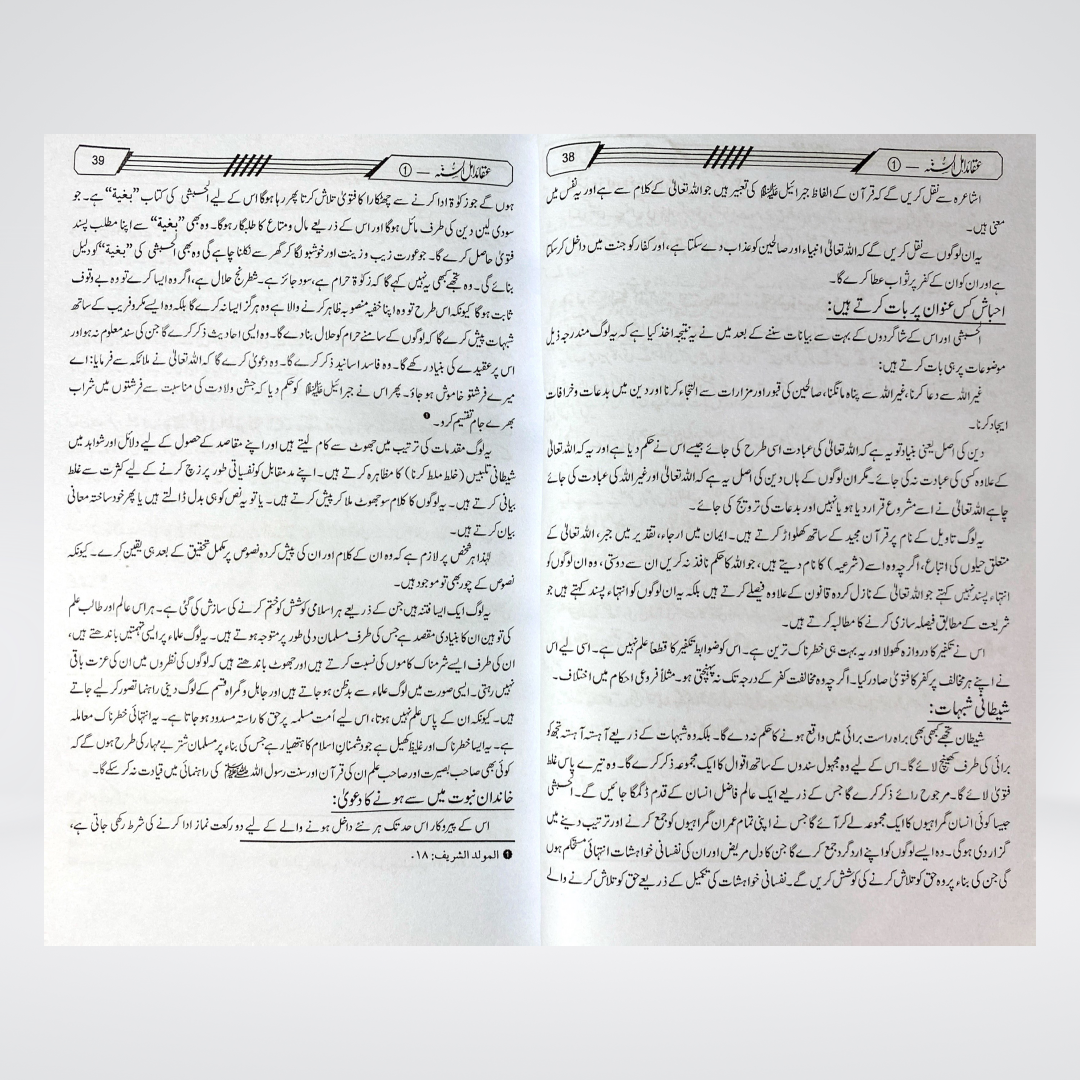 عقائد اہل السُنّہ — ①
38
اشاعرہ سے نقل کریں گے کہ قرآن کے الفاظ جبرائیل علیہ السلام کی تعبیر ہیں جو اللہ تعالیٰ کے کلام سے ہے اور یہ نفس میں
معنی ہیں۔
یہ ان لوگوں سے نقل کریں گے کہ اللہ تعالیٰ انبیاء اور صالحین کو عذاب دے سکتا ہے، اور کفار کو جنت میں داخل کر سکتا
ہے اور ان کو ان کے کفر پر ثواب عطا کرے گا۔
احباش کس عنوان پر بات کرتے ہیں:
الحبشی اور اس کے شاگردوں کے بہت سے بیانات سننے کے بعد میں نے یہ نتیجہ اخذ کیا ہے کہ یہ لوگ مندرجہ ذیل
موضوعات پر ہی بات کرتے ہیں:
غیر اللہ سے دعا کرنا، غیر اللہ سے پناہ مانگنا، صالحین کی قبور اور مزارات سے التجاء کرنا اور دین میں بدعات و خرافات
ایجاد کرنا۔
دین کی اصل یعنی بنیاد تو یہ ہے کہ اللہ تعالیٰ کی عبادت اسی طرح کی جائے جیسے اس نے حکم دیا ہے اور یہ کہ اللہ تعالیٰ
کے علاوہ کسی کی عبادت نہ کی جائے۔ مگر ان لوگوں کے ہاں دین کی اصل یہ ہے کہ اللہ تعالیٰ اور غیر اللہ کی عبادت کی جائے
چاہے اللہ تعالیٰ نے اسے مشروع قرار دیا ہو یا نہیں اور بدعات کی ترویج کی جائے۔
یہ لوگ تاویل کے نام پر قرآن مجید کے ساتھ کھلواڑ کرتے ہیں۔ ایمان میں ارجاء، تقدیر میں جبر، اللہ تعالیٰ کے
متعلق حیلوں کی اتباع، اگرچہ وہ اسے (شرعیہ) کا نام دیتے ہیں، جو اللہ کا حکم نافذ نہ کریں ان سے دوستی، وہ ان لوگوں کو
انتہاء پسند نہیں کہتے جو اللہ تعالیٰ کے نازل کردہ قانون کے علاوہ فیصلے کرتے ہیں بلکہ یہ ان لوگوں کو انتہاء پسند کہتے ہیں جو
شریعت کے مطابق فیصلہ سازی کرنے کا مطالبہ کرتے ہیں۔
اس نے تکفیر کا دروازہ کھولا اور یہ بہت ہی خطرناک ترین ہے۔ اس کو ضوابط تکفیر کا قطعاً علم نہیں ہے۔ اسی لیے اس
نے اپنے ہر مخالف پر کفر کا فتویٰ صادر کیا۔ اگرچہ وہ مخالفت کفر کے درجہ تک نہ پہنچتی ہو۔ مثلاً فروعی احکام میں اختلاف۔
شیطانی شبہات:
شیطان تجھے کبھی بھی براہ راست برائی میں واقع ہونے کا حکم نہ دے گا۔ بلکہ وہ شبہات کے ذریعے آہستہ آہستہ تجھ کو
برائی کی طرف کھینچ لائے گا۔ اس کے لیے وہ مجہول سندوں کے ساتھ اقوال کا ایک مجموعہ ذکر کرے گا۔ وہ تیرے پاس غلط
فتویٰ لائے گا۔ مرجوح رائے ذکر کرے گا جس کے ذریعے ایک عالم فاضل انسان کے قدم ڈگمگا جائیں گے۔ الحبشی
جیسا کوئی انسان گمراہیوں کا ایک مجموعہ لے کر آئے گا جس نے اپنی تمام عمر ان گمراہیوں کو جمع کرنے اور ترتیب دینے میں
گزار دی ہوگی۔ وہ ایسے لوگوں کو اپنے ارد گرد جمع کرے گا جن کا دل مریض اور ان کی نفسانی خواہشات انتہائی مستحکم ہوں
گی جن کی بناء پر وہ حق کو تلاش کرنے کی کوشش کریں گے۔ نفسانی خواہشات کی تکمیل کے ذریعے حق کو تلاش کرنے والے
عقائد اہل السُنّہ — ①
39
ہوں گے جو زکوٰۃ ادا کرنے سے چھٹکارا کا فتویٰ تلاش کرتا پھر رہا ہوگا اس کے لیے الحبشی کی کتاب ”بغیة“ ہے۔ جو
سودی لین دین کی طرف مائل ہوگا اور اس کے ذریعے مال و متاع کا طلبگار ہوگا۔ وہ بھی ”بغیة“ سے اپنا مطلب پسند
فتویٰ حاصل کرے گا۔ جو عورت زیب و زینت اور خوشبو لگا کر گھر سے نکلنا چاہے گی وہ بھی الحبشی کی ”بغیة“ کو دلیل
بنائے گی۔ وہ تجھے کبھی یہ نہیں کہے گا کہ زکوٰۃ حرام ہے، سود جائز ہے۔ شطرنج حلال ہے، اگر وہ ایسا کرے تو وہ بے وقوف
ثابت ہوگا کیونکہ اس طرح تو وہ اپنا خفیہ منصوبہ ظاہر کرنے والا ہے وہ ہرگز ایسا نہ کرے گا بلکہ وہ ایسے مکر و فریب کے ساتھ
شبہات پیش کرے گا کہ لوگوں کے سامنے حرام کو حلال بنا دے گا۔ وہ ایسی احادیث ذکر کرے گا جن کی سند معلوم نہ ہو اور
اس پر عقیدے کی بنیاد رکھے گا۔ وہ فاسد اسانید ذکر کرے گا۔ وہ دعویٰ کرے گا کہ اللہ تعالیٰ نے ملائکہ سے فرمایا: اے
میرے فرشتو خاموش ہو جاؤ۔ پھر اس نے جبرائیل علیہ السلام کو حکم دیا کہ جشن ولادت کی مناسبت سے فرشتوں میں شراب
بھرے جام تقسیم کر دو۔ ❶
یہ لوگ مقدمات کی ترتیب میں جھوٹ سے کام لیتے ہیں اور اپنے مقاصد کے حصول کے لیے دلائل اور شواہد میں
شیطانی تلبیس (خلط ملط کرنا) کا مظاہرہ کرتے ہیں۔ اپنے مد مقابل کو نفسیاتی طور پر زچ کرنے کے لیے کثرت سے غلط
بیانی کرتے ہیں۔ یہ لوگوں کا کلام سو جھوٹ ملا کر پیش کرتے ہیں۔ یا تو یہ نص کو ہی بدل ڈالتے ہیں یا پھر خود ساختہ معانی
بیان کرتے ہیں۔
لہٰذا ہر شخص پر لازم ہے کہ وہ ان کے کلام اور ان کی پیش کردہ نصوص پر مکمل تحقیق کے بعد ہی یقین کرے۔ کیونکہ
نصوص کے چور بھی تو موجود ہیں۔
یہ لوگ ایک ایسا فتنہ ہیں جن کے ذریعے ہر اسلامی کوشش کو ختم کرنے کی سازش کی گئی ہے۔ ہر اس عالم اور طالب علم
کی توہین ان کا بنیادی مقصد ہے جس کی طرف مسلمان دلی طور پر متوجہ ہوتے ہیں۔ یہ لوگ علماء پر ایسی تہمتیں باندھتے ہیں،
ان کی طرف ایسے شرمناک کاموں کی نسبت کرتے ہیں اور جھوٹ باندھتے ہیں کہ لوگوں کی نظروں میں ان کی عزت باقی
نہیں رہتی۔ ایسی صورت میں لوگ علماء سے بدظن ہو جاتے ہیں اور جاہل و گمراہ قسم کے لوگ دینی راہنما تصور کر لیے جاتے
ہیں۔ کیونکہ ان کے پاس علم نہیں ہوتا، اس لیے اُمت مسلمہ پر حق کا راستہ مسدود ہو جاتا ہے۔ یہ انتہائی خطرناک معاملہ
ہے۔ یہ ایسا خطرناک اور غلیظ کھیل ہے جو دشمنانِ اسلام کا ہتھیار ہے جس کی بناء پر مسلمان شتر بے مہار کی طرح ہوں گے کہ
کوئی بھی صاحب بصیرت اور صاحب علم ان کی قرآن اور سنت رسول اللہ ﷺ کی راہنمائی میں قیادت نہ کر سکے گا۔
خاندان نبوت میں سے ہونے کا دعویٰ:
اس کے پیروکار اس حد تک ہر نئے داخل ہونے والے کے لیے دو رکعت نماز ادا کرنے کی شرط رکھی جاتی ہے،
❶ المولد الشریف: ۰۱۸